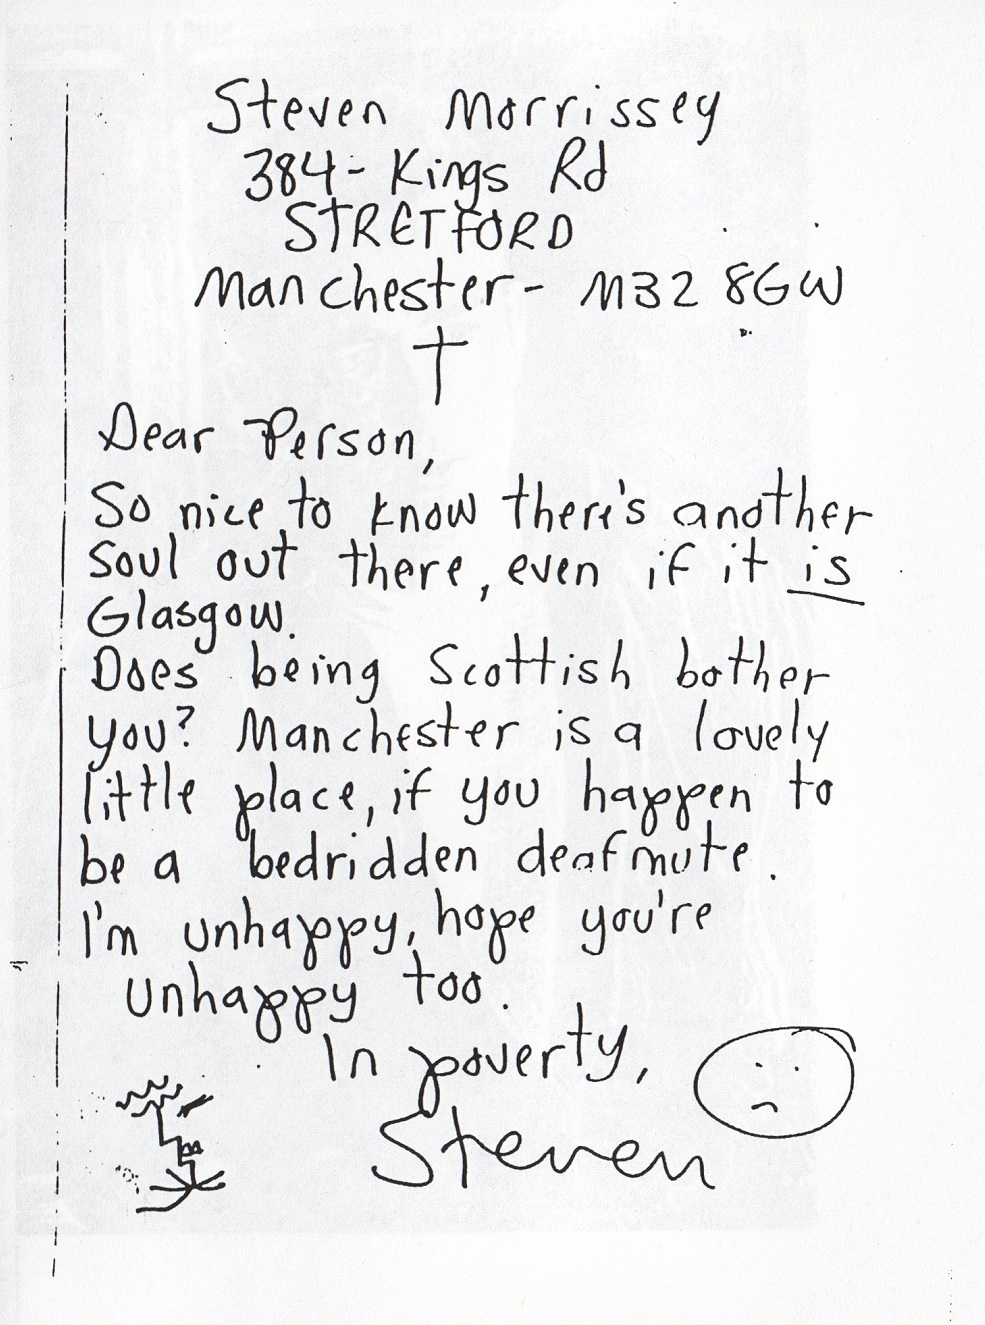 Steven Morrissey
384- Kings Rd
STRETFORD
Manchester- M32 8GW
Dear Person,
So nice to know there's another
soul out there, even if it is
Glasgow.
Does being Scottish bother
you? Manchester is a lovely
little place, if you happen to
be a bedridden deafmute.
I'm unhappy, hope you're
unhappy too.
In poverty,
Steven